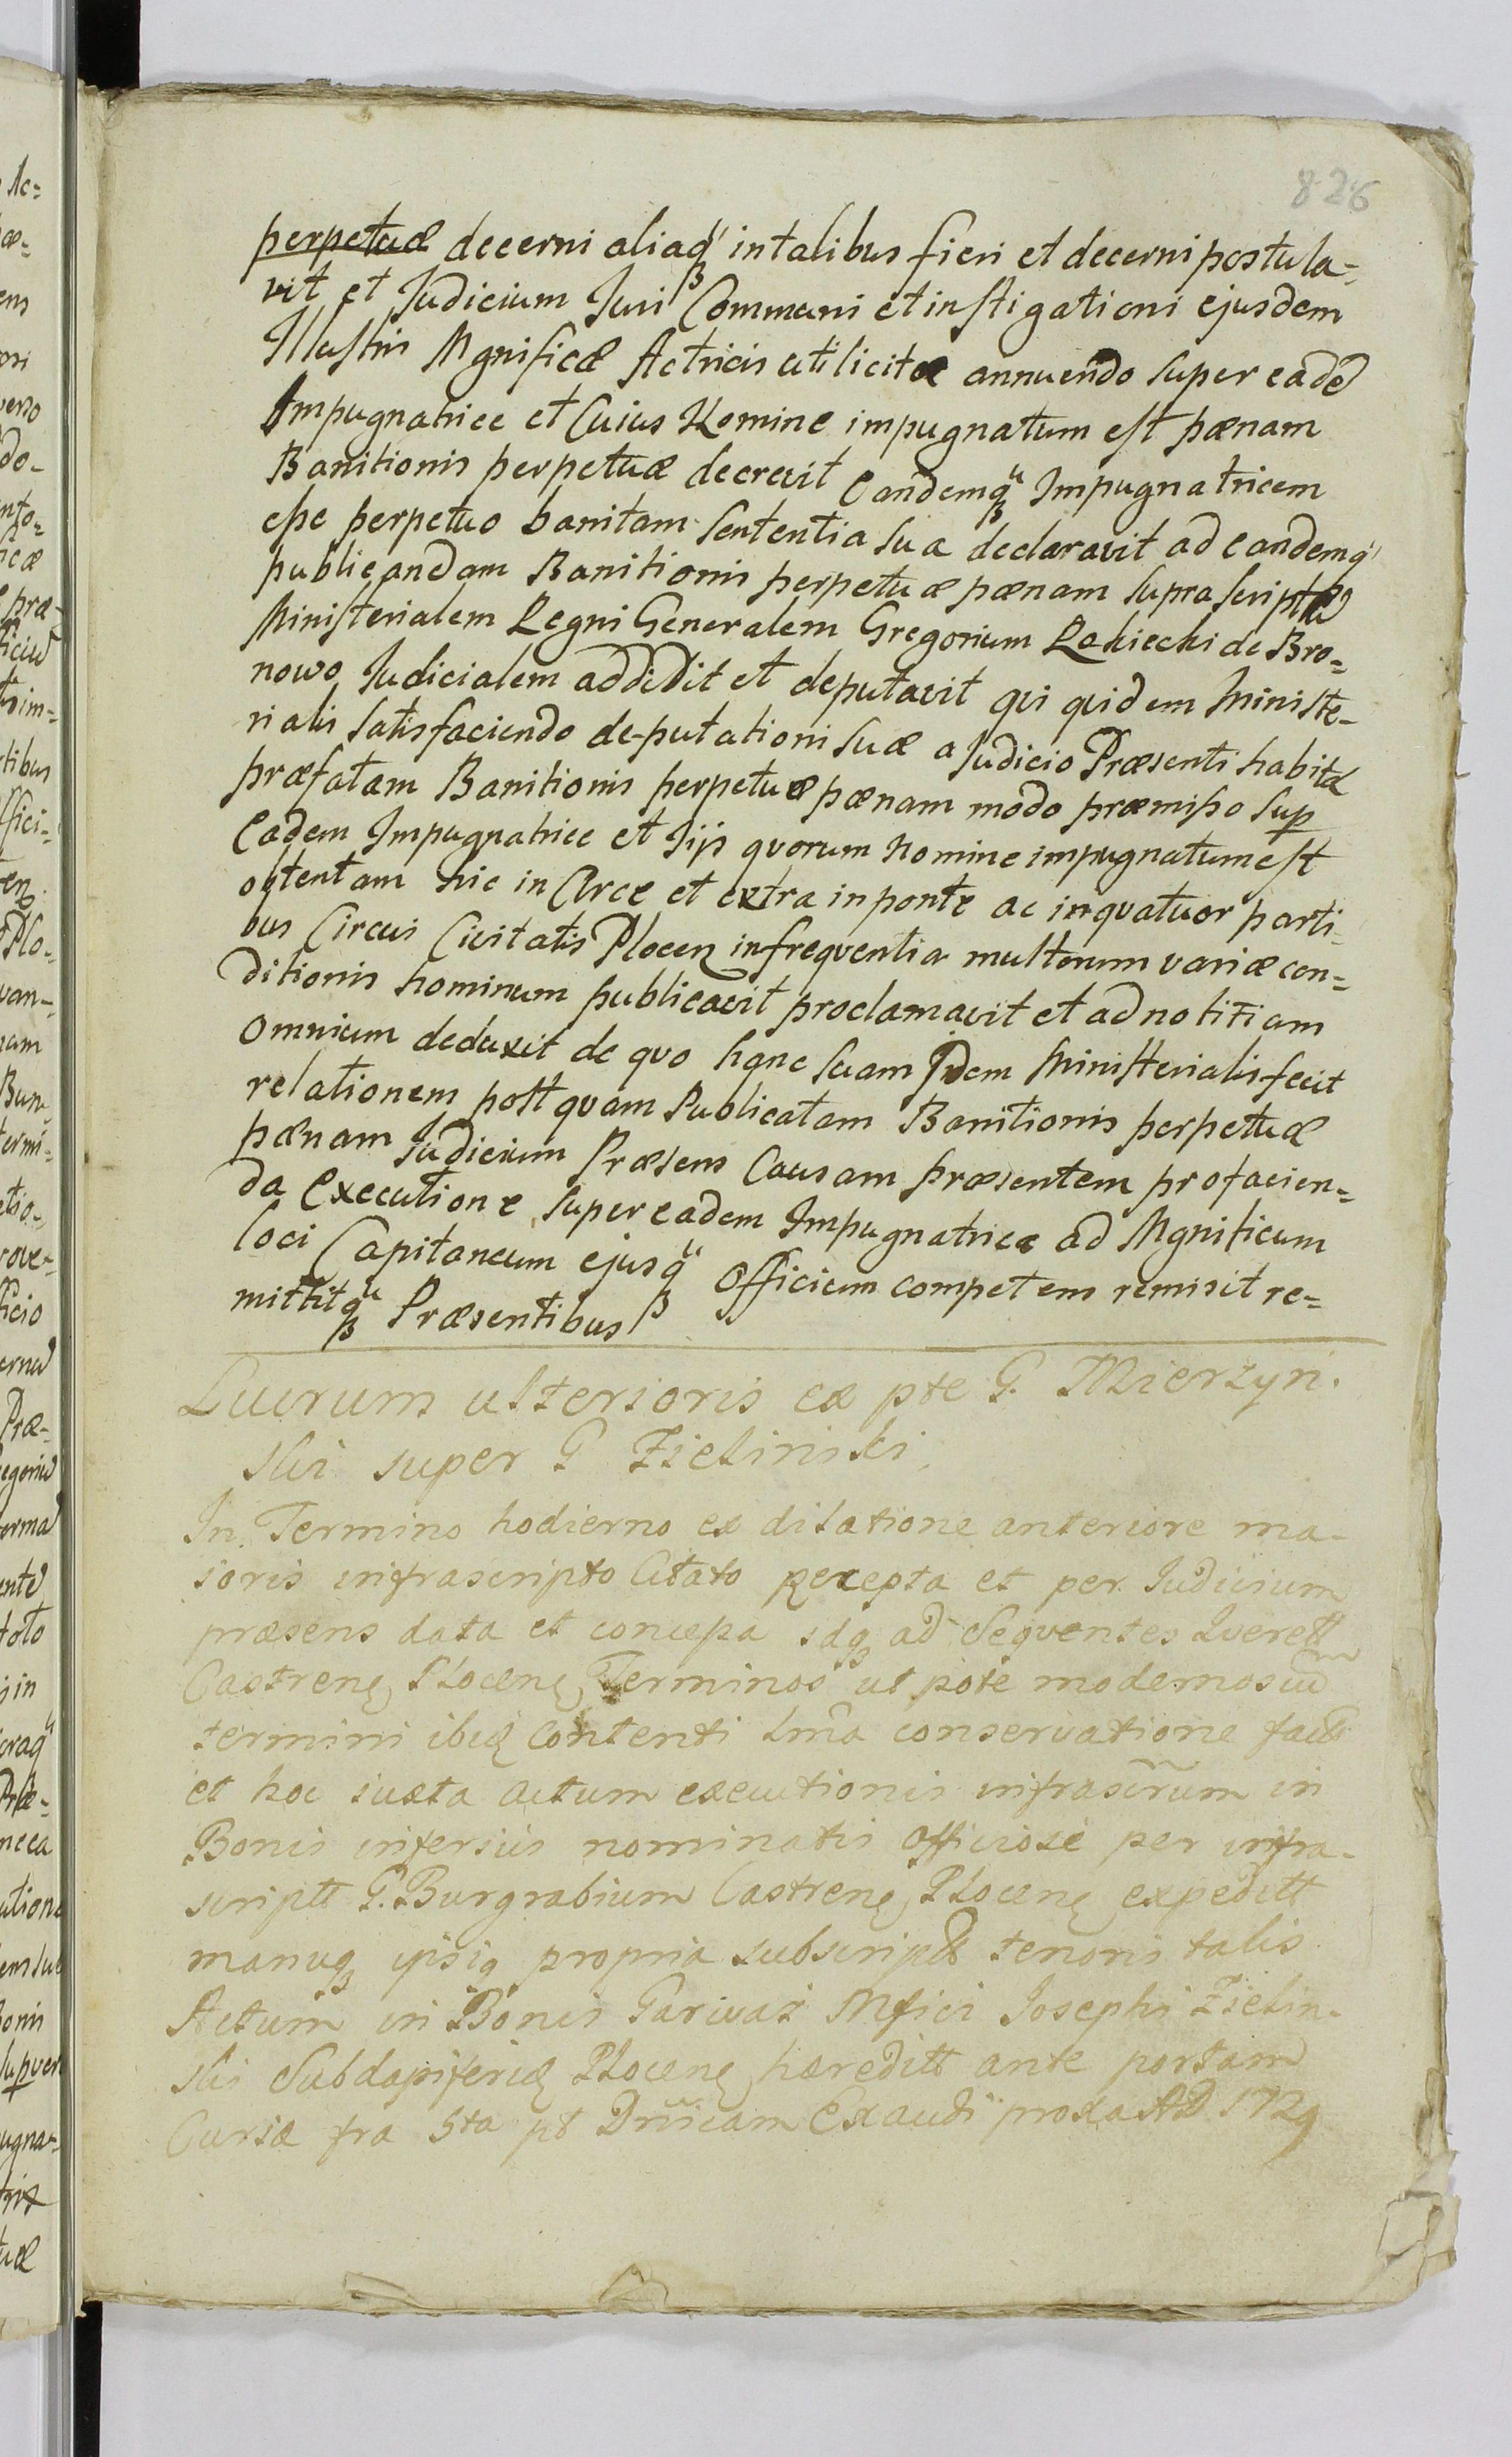 826
perpetuæ decerni aliaq' in talibus fieri et decerni postula=
vit et Judicium Juri Communi et instigationi ejusdem
Illustris Mgnificæ Actricis uti licitæ annuendo super eade
Impugnatrice et Cuius Nomine impugnatum est pænam
Banitionis perpetuæ decrevit Eandemq Impugnatricem
esse perpetuo banitam Sententia sua declaravit ad eandemq'
publicandam Banitionis perpetuæ pænam supra scripta
Ministerialem Regni Generalem Gregorium Rokiecki de Bro=
nowo Judicialem addidit et deputavit qui quidem Ministe=
rialis satisfaciendo de-putationi suæ a Judicio Præsenti habitæ
præfatam Banitionis perpetuæ pænam modo præmisso sup
Eadem Impugnatrice et Iijs quorum Nomine impugnatum est
obtentam hic in Arce et extra in ponte ac in quatuor parti=
bus Circui Civitatis Plocen in frequentia multorum variæ con=
ditionis hominum publicavit proclamavit et ad notitiam
omnium deduxit de quo hanc suam Idem Ministerialis fecit
relationem post quam Publicatam Banitionis perpetuæ
pænam Judicium Præsens Causam præsentem pro facien=
da Executione super eadem Impugnatrice ad Mgnificum
loci Capitaneum ejusq Officium competens remisit re=
mittitq Præsentibus
Lucrum ulterioris ex pte G. Mierzyn.
ski super G Zielinski
In Termino hodierno ex dilatione anteriore ma-
ioris infrascripto Citato recepta et per Iudicium
præsens data et concessa idq ad Sequentes
Castren Plocen Terminos ut pote modernos cu
termini ibiq contenti lma conservatione facta
et hoc iuxta actum executionis infrascrum in
Bonis inferius nominatis officiose per infra-
scriptt G. Burgrabium Castren Plocen expeditt
manuq ipsiq propria subscriptt tenoris talis
Actum in Bonis Garwaz Mfici Josephi Zielin-
ski Subdapiferid Plocen hæreditt ante portam
Curiæ fra 5ta pt Dnicam Exaudi proxa AD 1729